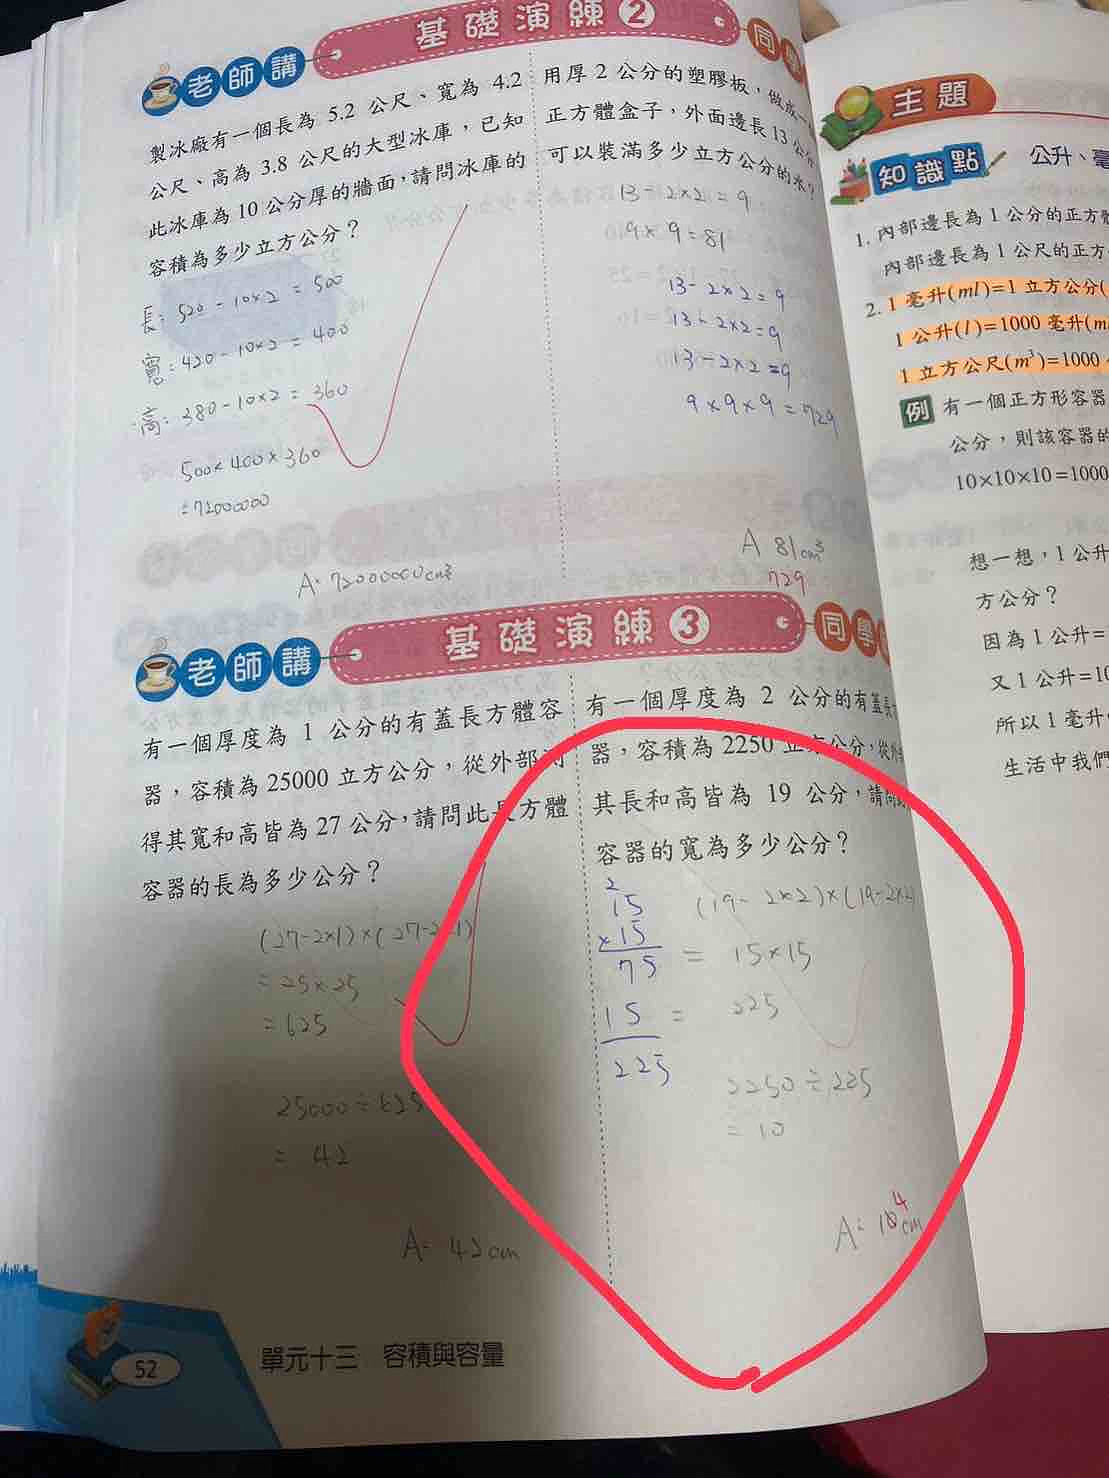 基礎演練2
老師講
同學
製冰廠有一個長為 5.2 公尺、寬為 4.2
公尺、高為 3.8 公尺的大型冰庫,已知
此冰庫為 10 公分厚的牆面,請問冰庫的
容積為多少立方公分?
長: 520-10×2 = 500
寬: 420-10×2 = 400
高: 380-10×2 = 360
500×400×360
=72000000
A: 72000000cm³
用厚 2 公分的塑膠板,做成一
正方體盒子,外面邊長13公分
可以裝滿多少立方公分的水?
13-2×2=9
9×9=81
13-2×2=9
13-2×2=9
13-2×2=9
9×9×9=729
A 81cm³
729
基礎演練3
老師講
同學
有一個厚度為 1 公分的有蓋長方體容
器,容積為 25000 立方公分,從外部測
得其寬和高皆為 27 公分,請問此長方體
容器的長為多少公分?
(27-2×1)×(27-2×1)
=25×25
=625
25000÷625
= 42
A: 42cm
有一個厚度為 2 公分的有蓋長
器,容積為 2250 立方公分,從外
其長和高皆為 19 公分,請問
容器的寬為多少公分?
2
15
×15
75
15
225
(19-2×2)×(19-2×2)
= 15×15
= 225
2250÷225
= 10
A: 10cm
4
52
單元十三 容積與容量
主題
知識點
公升、毫
1. 內部邊長為 1 公分的正方
內部邊長為 1 公尺的正方
2. 1 毫升(ml)=1 立方公分(
1 公升(l)=1000 毫升(m
1 立方公尺(m³)=1000
例 有一個正方形容器
公分,則該容器的
10×10×10=1000
想一想,1 公升
方公分?
因為 1 公升=
又 1 公升=10
所以 1 毫升
生活中我們